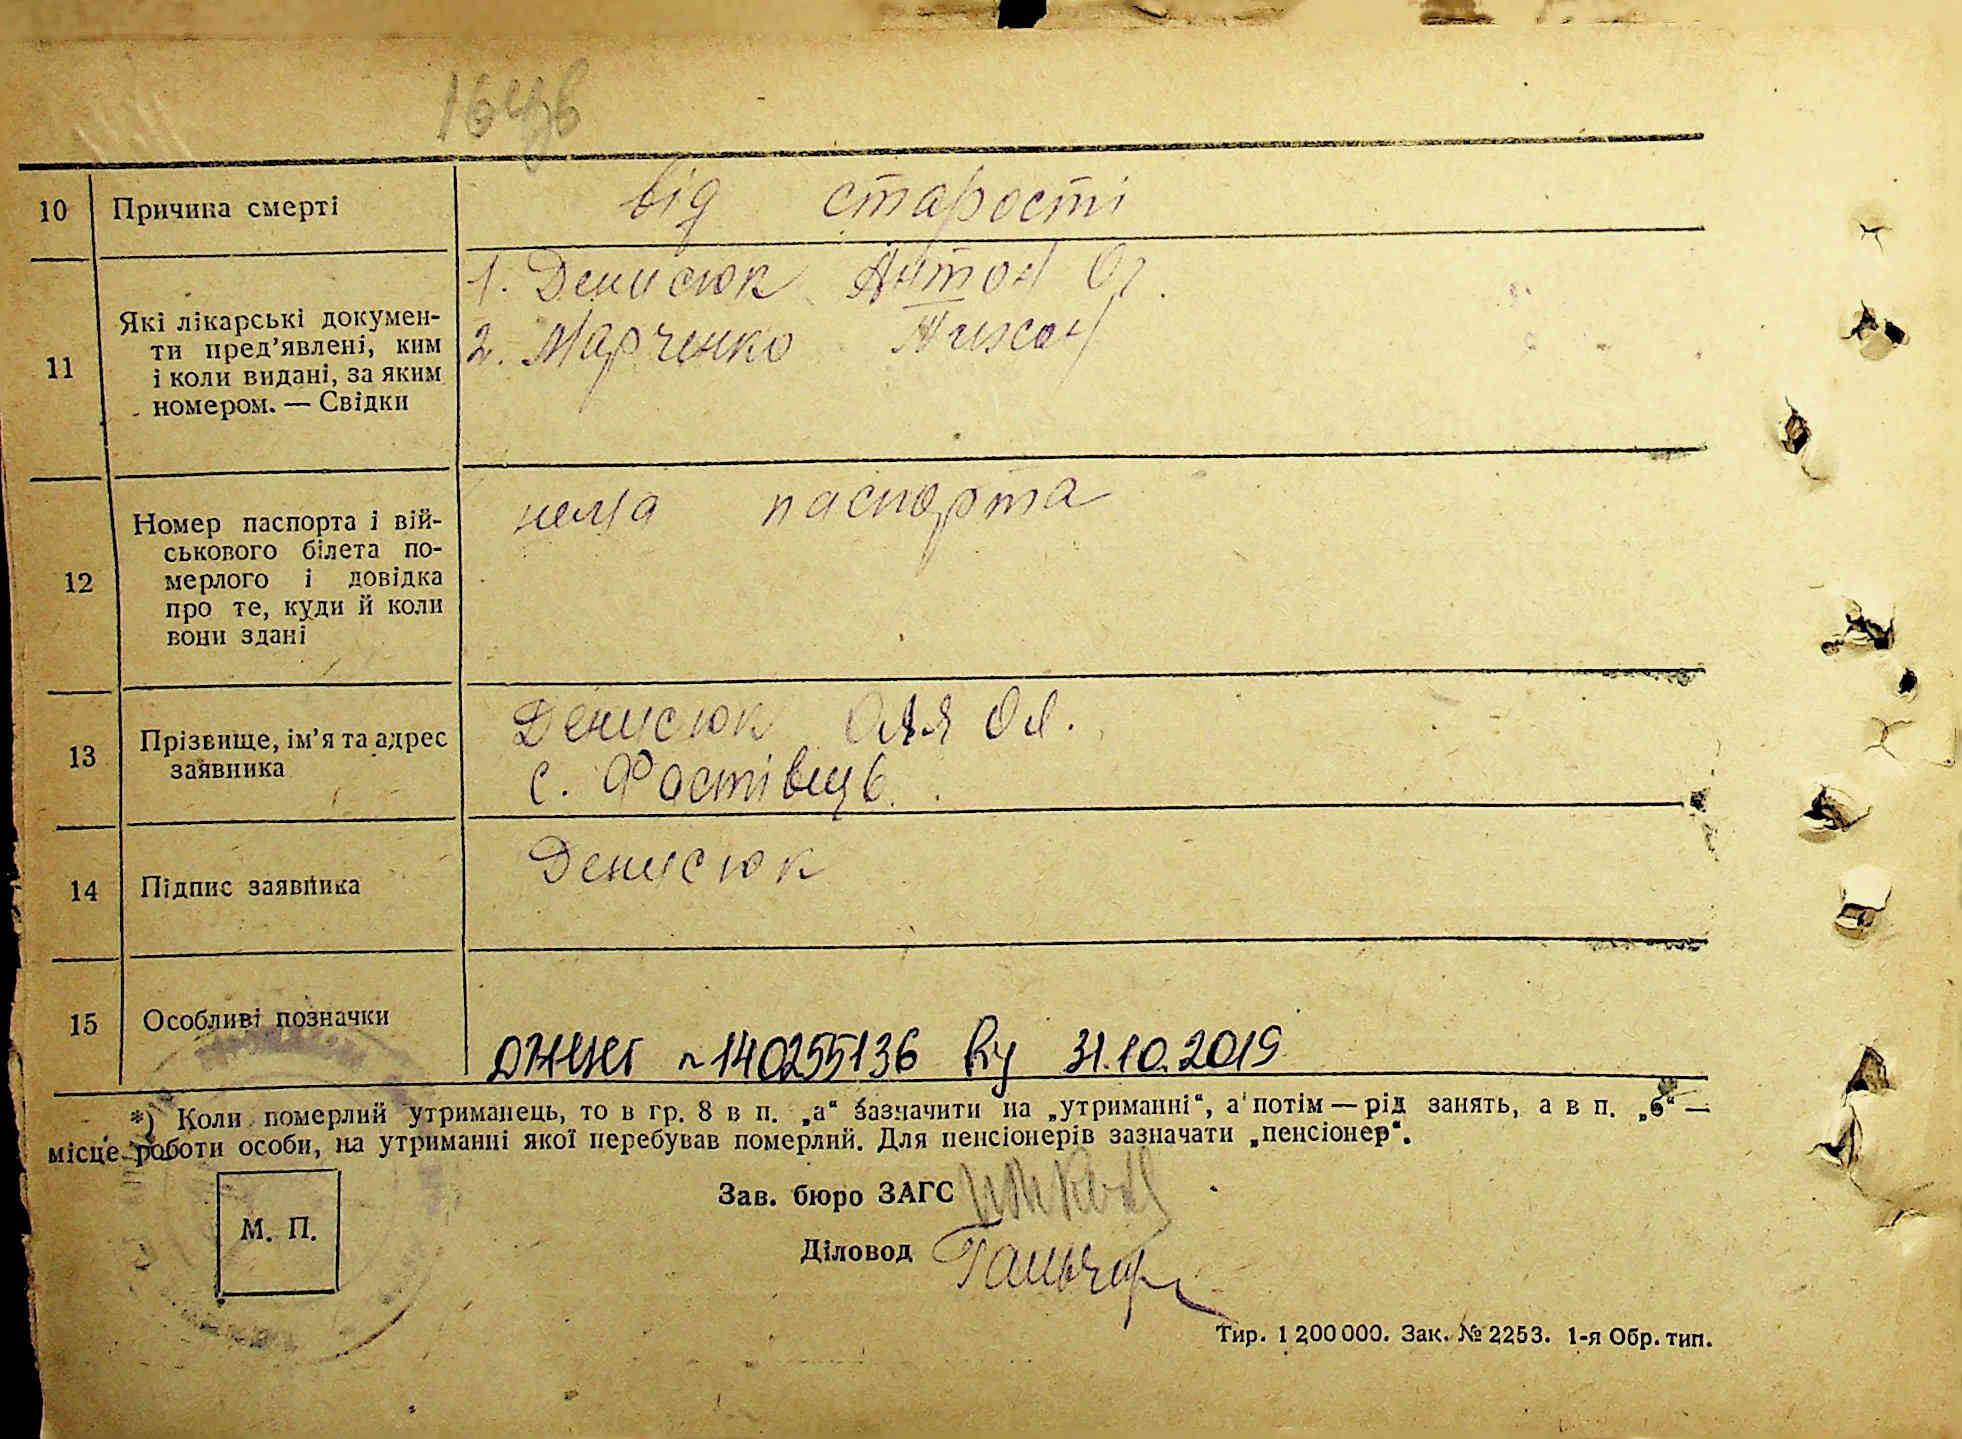 10 Причина смерті від старості
1. Денисюк Антон Ол.
2. Марченко Тихон
11 Які лікарські докумен-
ти пред’явлені, ким
і коли видані, за яким
номером. — Свідки
нема паспорта
12 Номер паспорта і вій-
ськового білета по-
мерлого і довідка
про те, куди й коли
вони здані
Денисюк Оля Ол.
с. Фастівець
13 Прізвище, ім’я та адрес
заявника
14 Підпис заявника Денисюк
15 Особливі позначки
140255136 31.10.2019
*) Коли померлий утриманець, то в гр. 8 в п. „а“ зазначити на „утриманні“, а потім — рід занять, а в п. „б“ —
місце роботи особи, на утриманні якої перебував померлий. Для пенсіонерів зазначати „пенсіонер“.
Зав. бюро ЗАГС
М. П.
Діловод
Тир. 1 200 000. Зак. № 2253. 1-я Обр. тип.